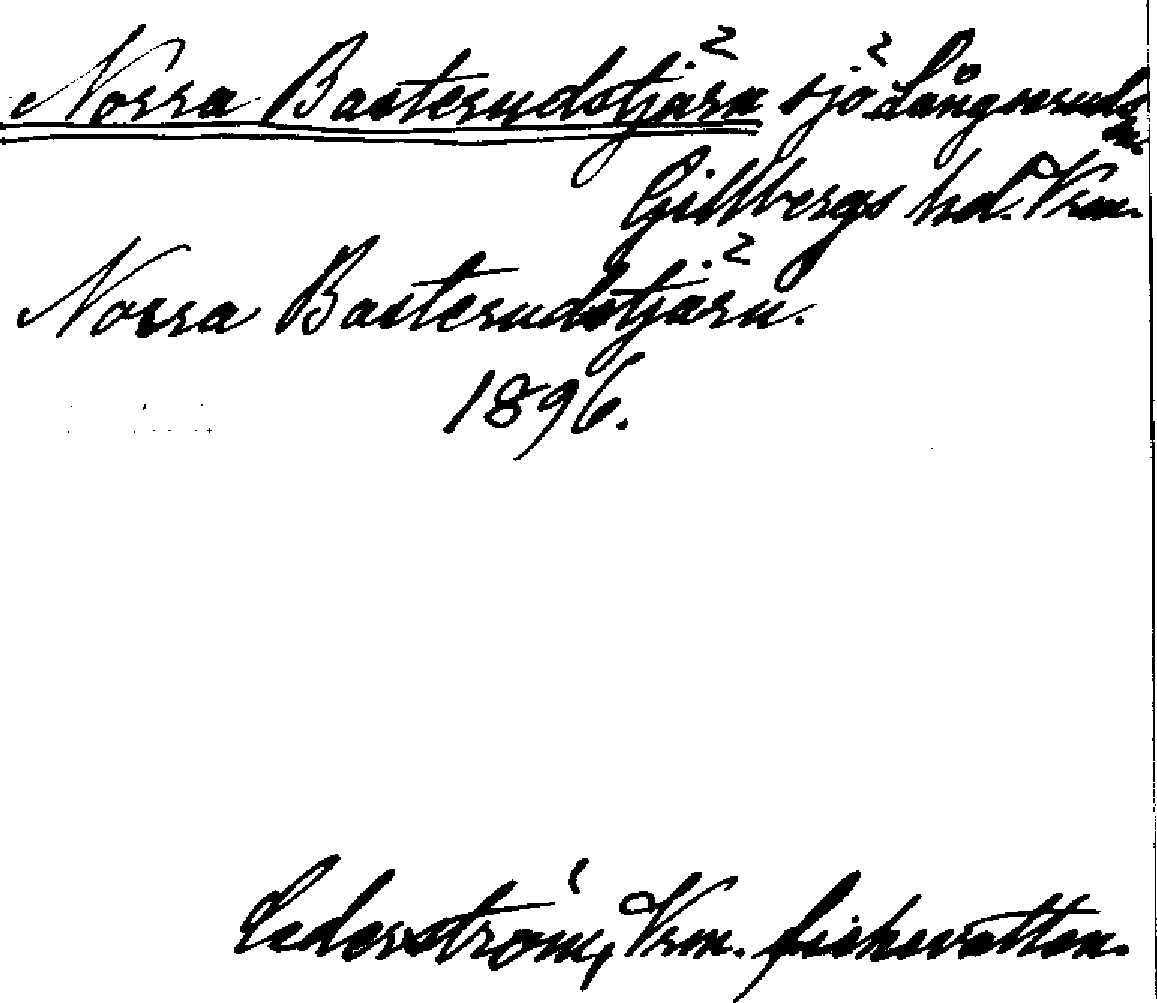 Norra Basterudstjärn sjö Långseruds
sn.
Gillbergs hd. Vrm.
Norra Basterudstjärn.
1896.
Cederström, Vrm. fiskevatten.